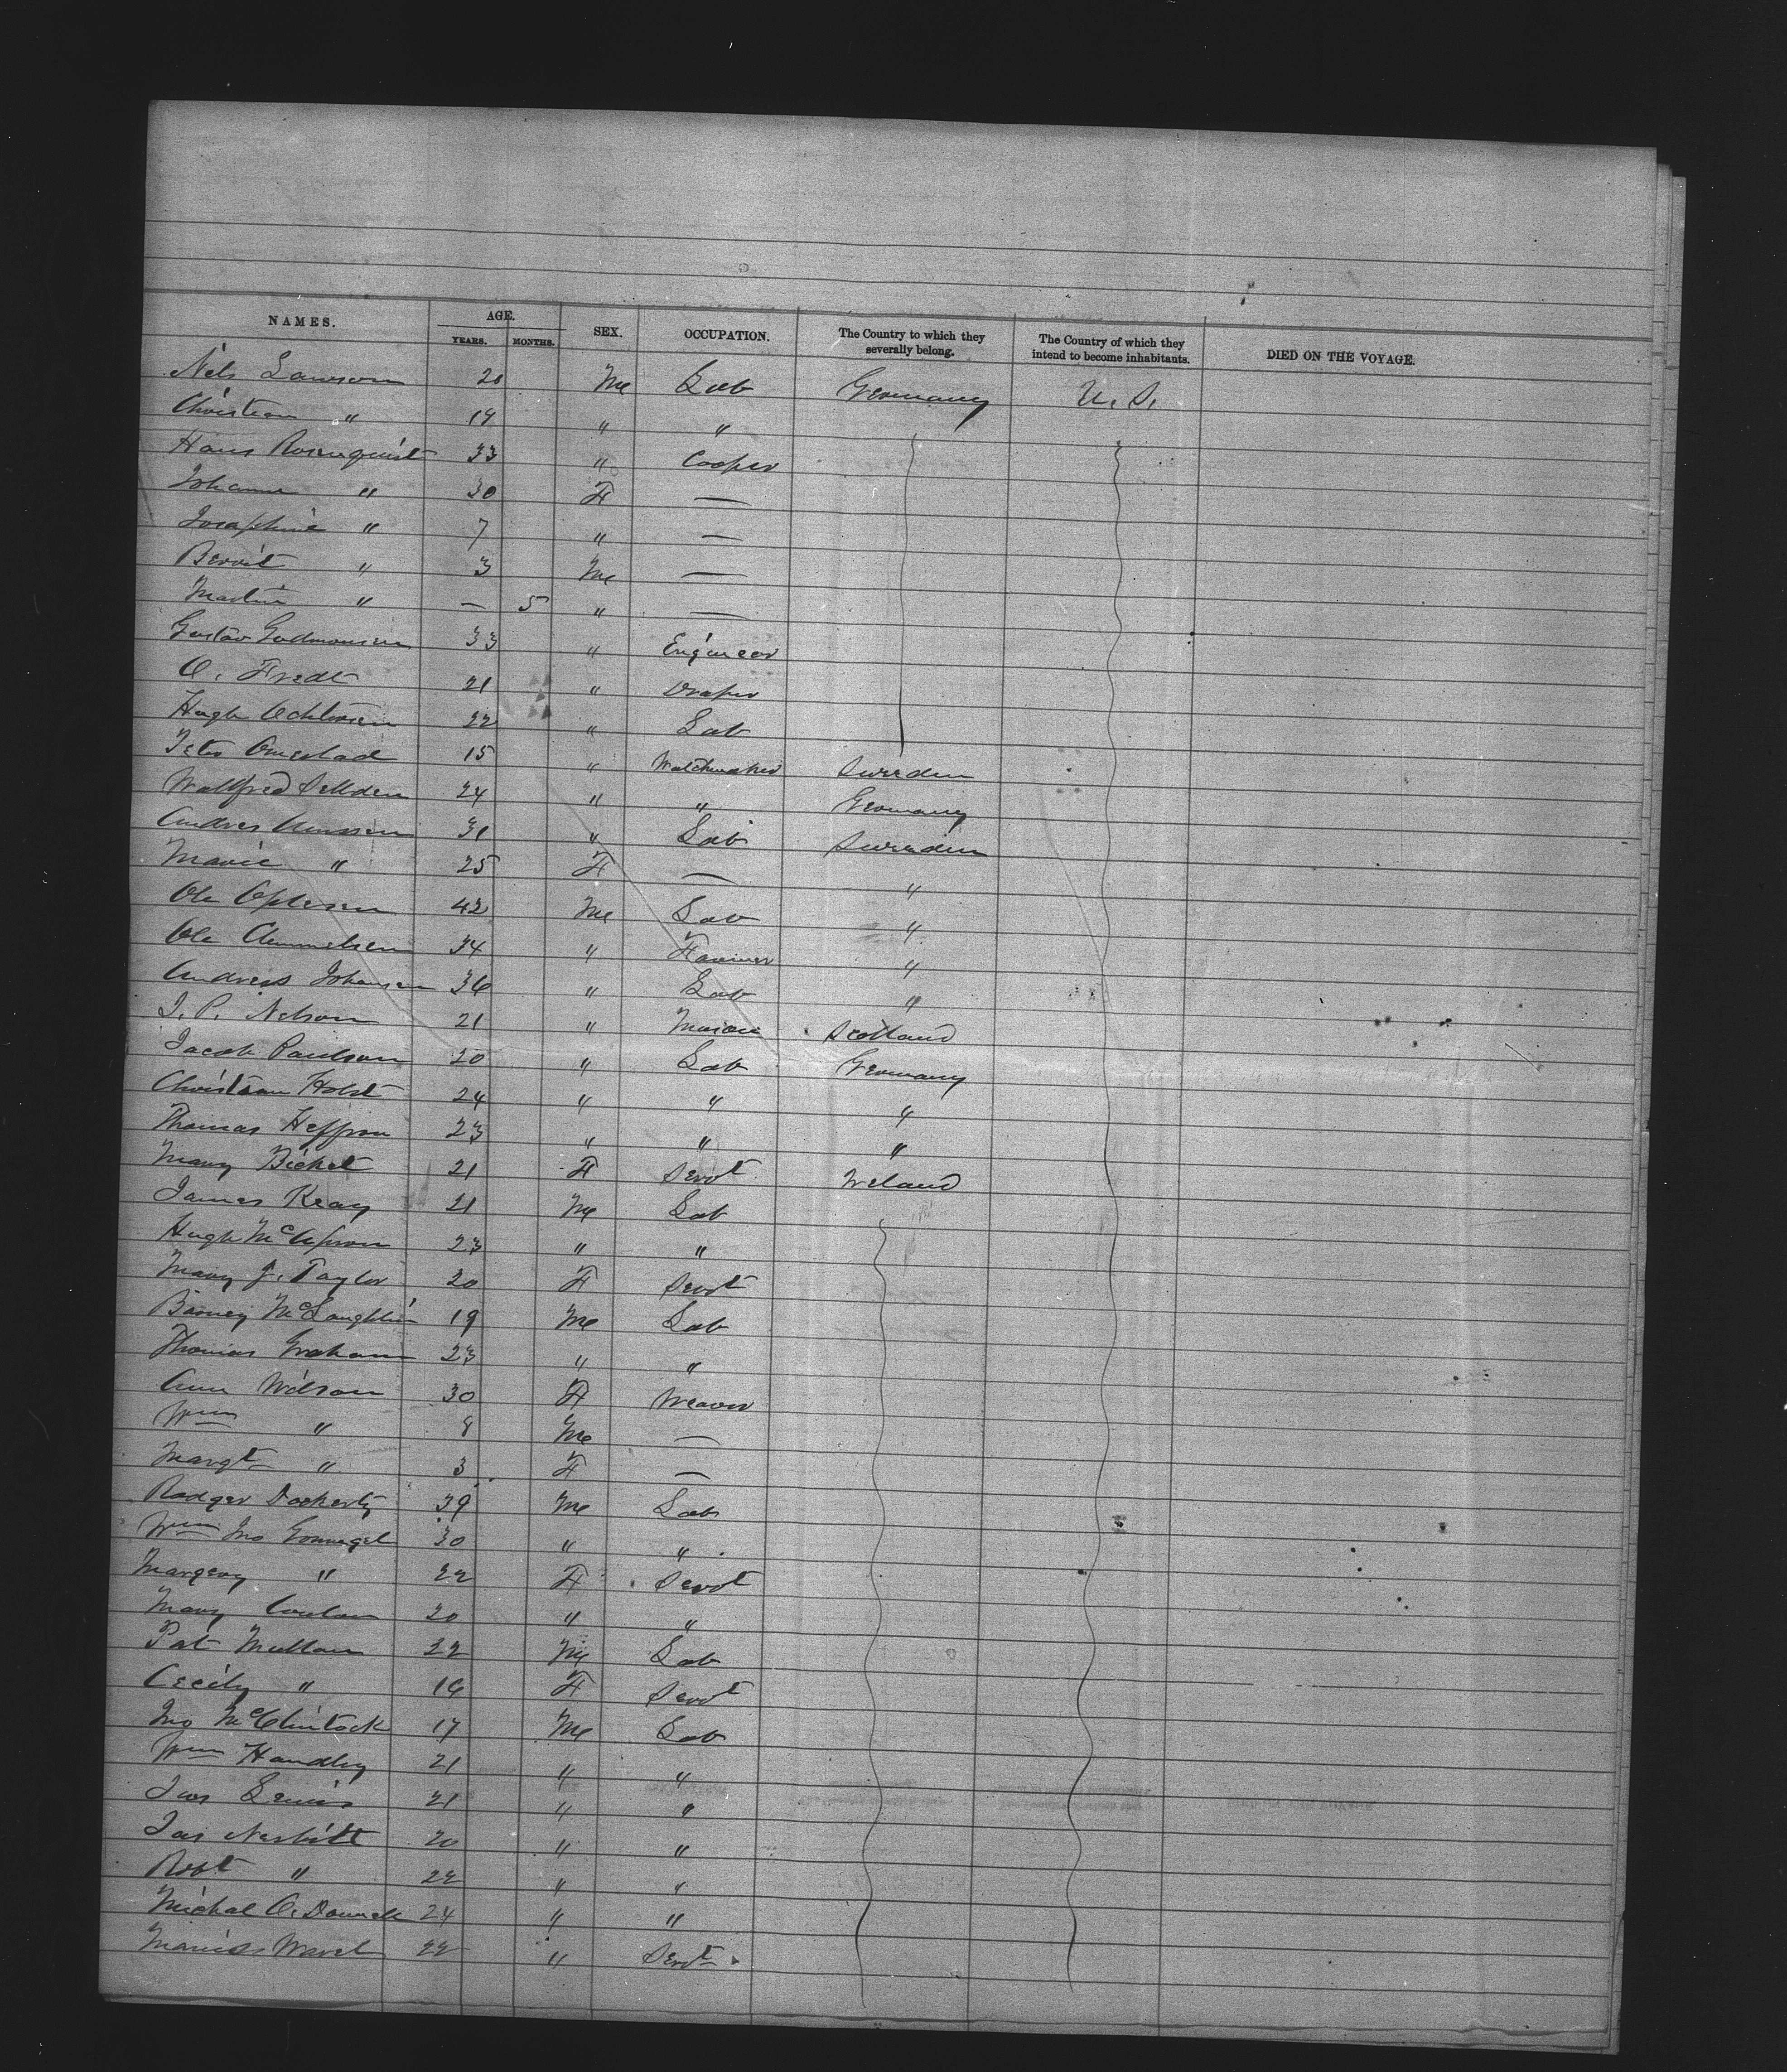 NAMES. AGE. SEX. OCCUPATION. The Country to which they severally belong. The Country of which they intend to become inhabitants. DIED ON THE VOYAGE.
YEARS. MONTHS.
Nels Lawson 20 Me Lab Germany U. S.
Christian " 19 " "
Hans Rosenquist 33 " Cooper
Johanna " 30 F —
Josephine " 7 " —
Beroit " 3 Me —
Martin " — 5 " —
Gustav Gudmonsen 33 " Engineer
O. Fredt 21 " Draper
Hugh 22 " Lab
Peter Omestad 15 " Watchmaker Sweden
Wallfred Sellden 24 " " Germany
Andres 31 " Lab Sweden
Marie " 25 F — "
Ole 42 Me Lab "
Ole 34 " Farmer "
Andress Johansen 36 " Lab "
J. P. Nelson 21 " Mason Scotland
Jacob Paulson 20 " Lab Germany
Christian Holst 24 " " "
Thomas Heffron 23 " " "
Mary Bickel 21 F Servt Ireland
James Keay 21 Me Lab
Hugh 23 " "
Mary J. Taylor 20 F Servt
Barney McLaughlin 19 Me Lab
Thomas Graham 23 " "
Ann Wilson 30 F Weaver
Wm " 8 Me —
Margt " 3 F —
Rodger Dockerty 39 Me Lab
Wm Jno Gonnegal 30 " "
Margery " 22 F Servt
Mary Conlan 20 " "
Pat Mullan 22 Me Lab
Cecily " 16 F Servt
Jno McClintock 17 Me Lab
Wm Handley 21 " "
Jas Lewis 21 " "
Jas Nesbitt 20 " "
Robt " 22 " "
Michal O. Donnell 24 " "
22 " Servt